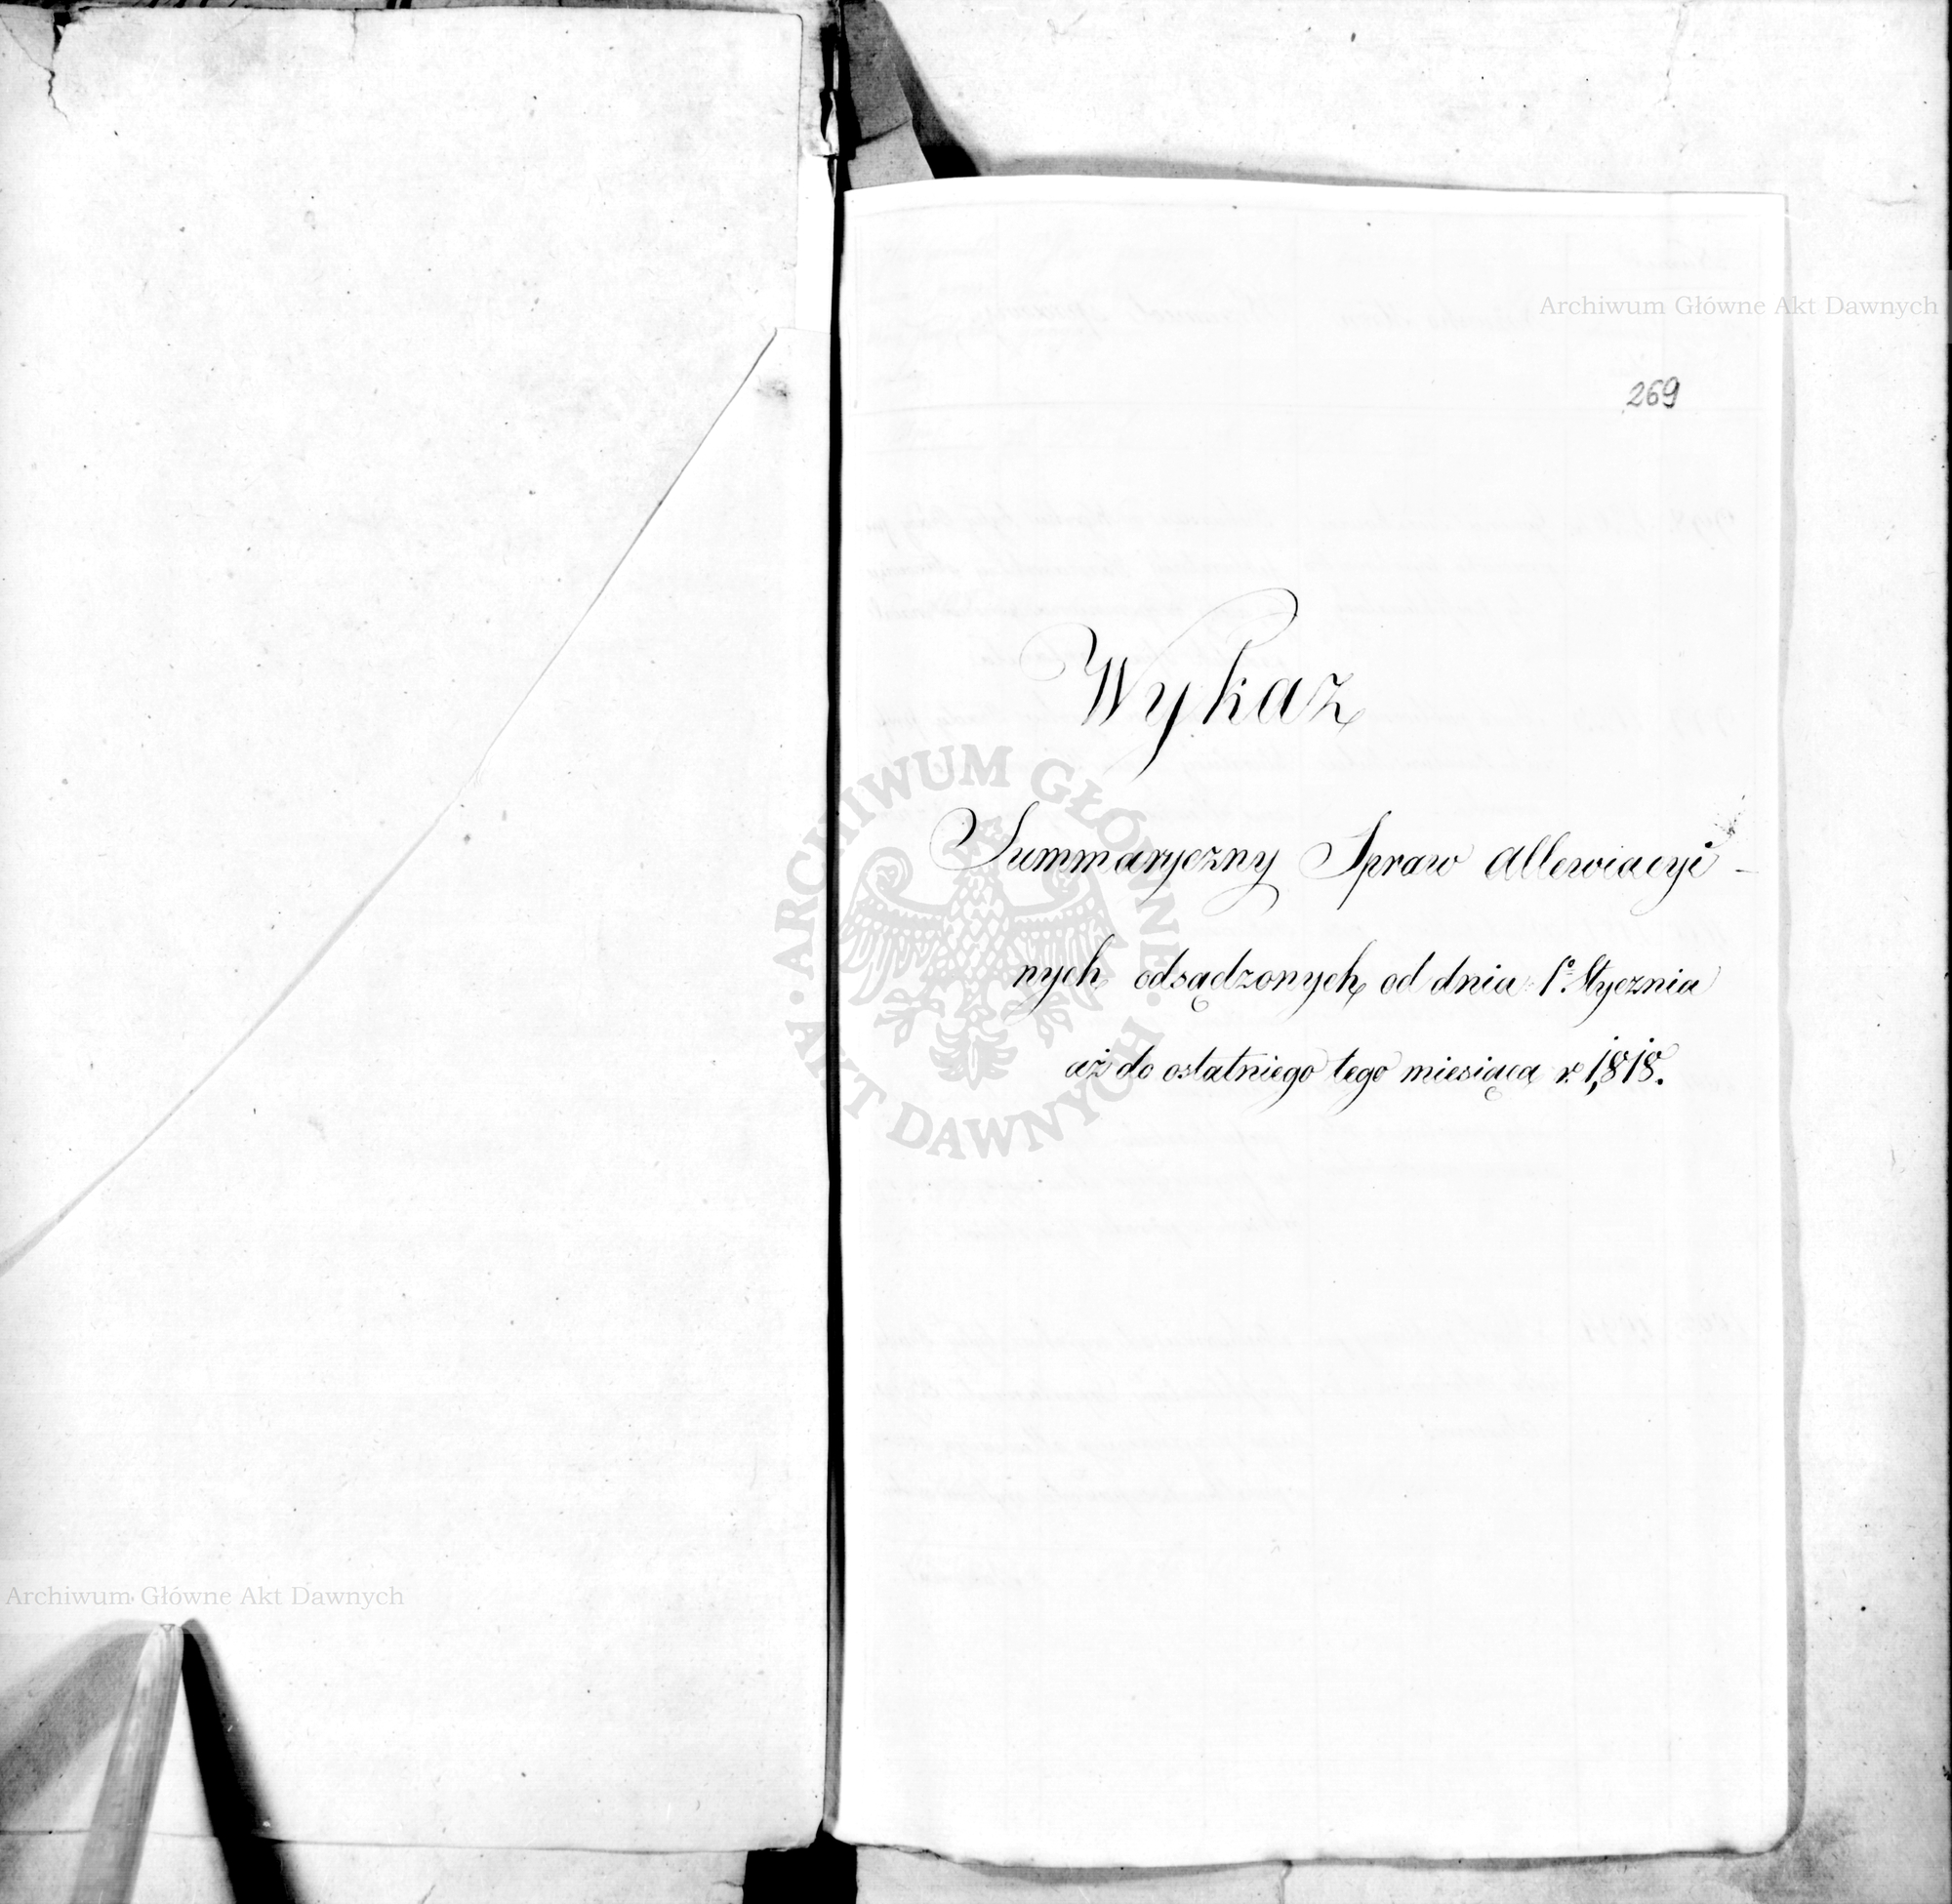 Archiwum Główne Akt Dawnych
269
Wykaz
Summaryczny Spraw Allewiacyi-
nych odsądzonych od dnia 1º Stycznia
aż do ostatniego tego miesiąca r. 1818.
ARCHIWUM GŁÓWNE · AKT DAWNYCH ·
Archiwum Główne Akt Dawnych